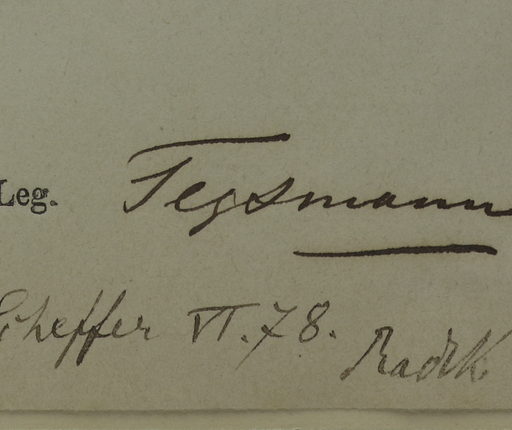 Leg. Tegsmann
Scheffer VI.78.